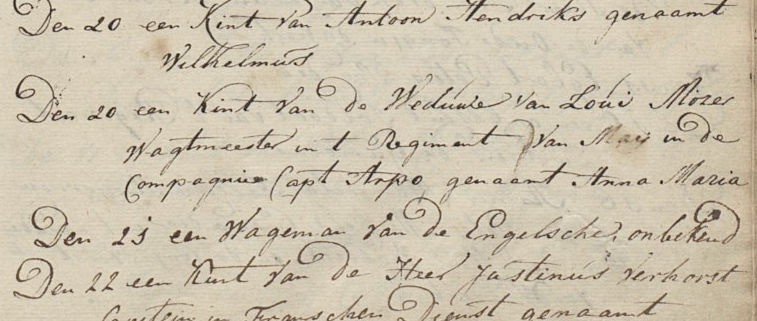 Den 20 een Kint van Antoon Hendriks genaamt
Wilhelmus
Den 20 een Kint van de Weduwe van Loui Mozer
Wagtmeester in t Regiment van in de
Compagnie Capt Arpo genaamt Anna Maria
Den 21 een Wageman van de Engelsche, onbekend
Den 22 een Kint van de Heer Justinus Verhorst
Capitein in Franschen Dienst genaamt